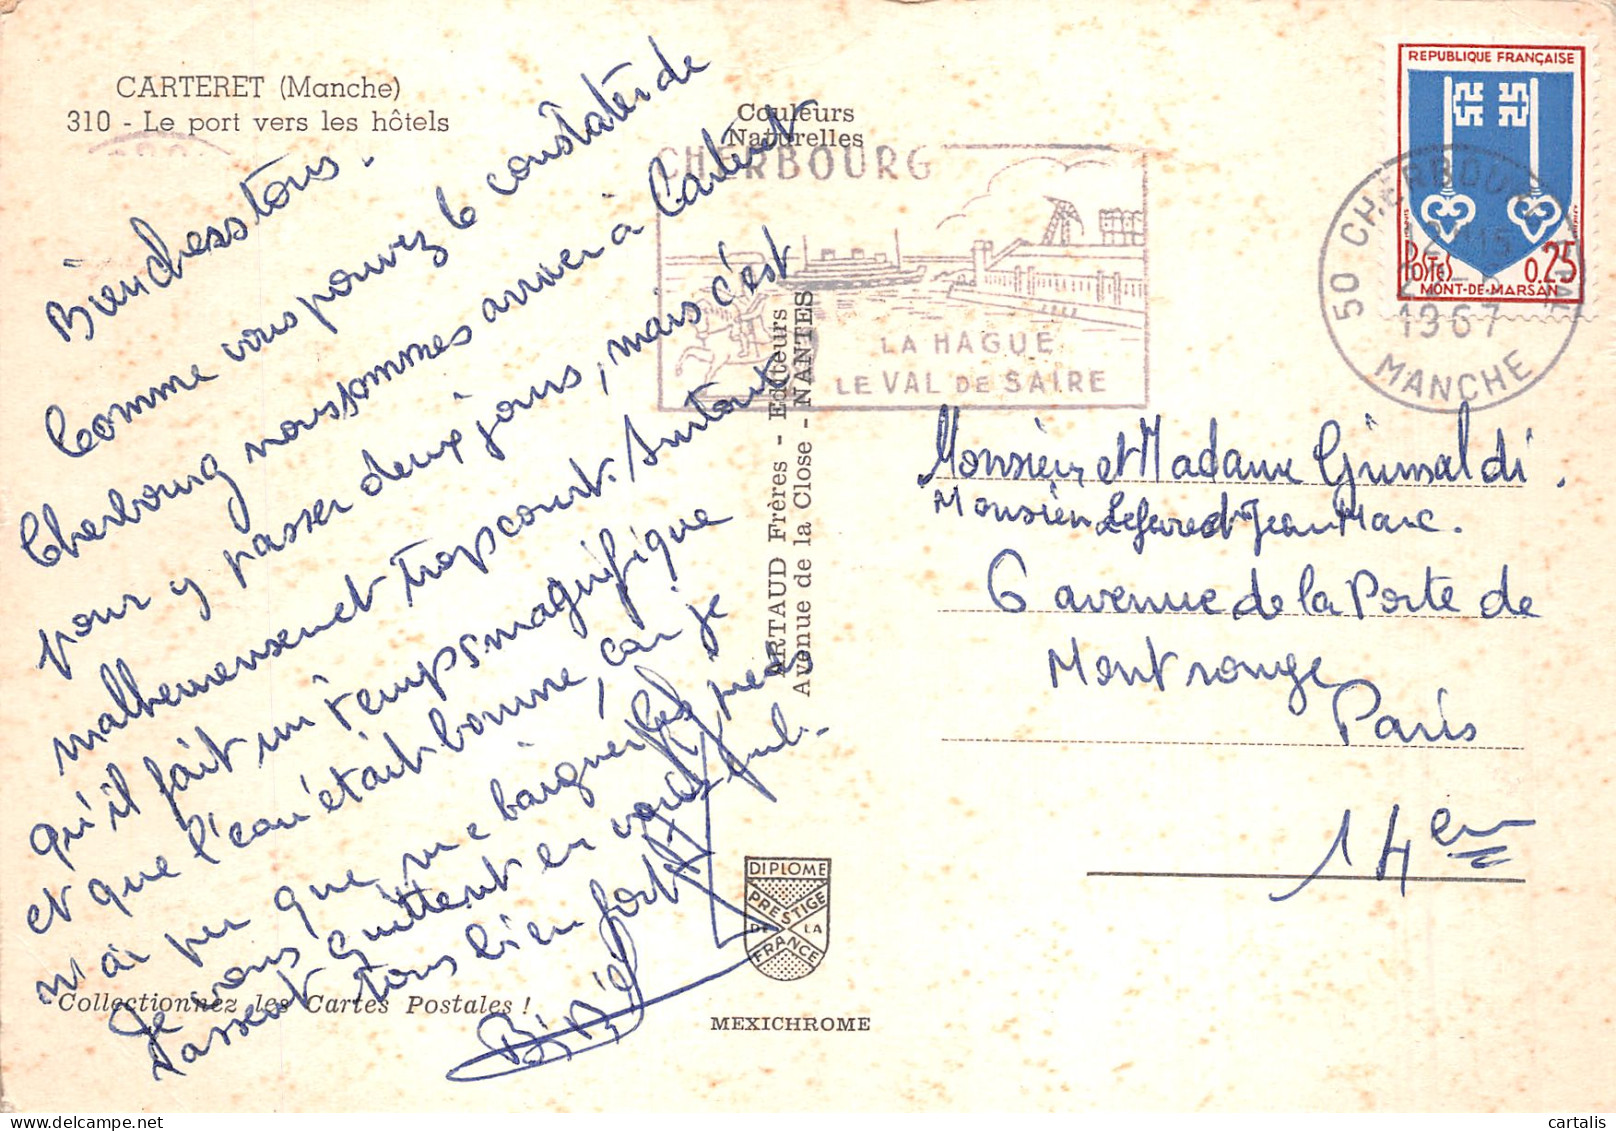 CARTERET (Manche)
310 - Le port vers les hôtels
Couleurs
Naturelles
Bien chers tous.
Comme vous pouvez le constater de
Cherbourg nous sommes arriver à Carteret
pour y passer deux jours, mais c'est
malheureusement trop court. Surtout
qu'il fait un temps magnifique
et que l'eau était bonne, car je
n'ai pu que me baigner les pieds
Je vous quittent en vous
embrassent tous bien fort
ARTAUD Frères - Editeurs
Avenue de la Close - NANTES
Collectionnez les Cartes Postales !
DIPLOME
PRESTIGE
DE LA
FRANCE
MEXICHROME
CHERBOURG
LA HAGUE
LE VAL DE SAIRE
REPUBLIQUE FRANÇAISE
POSTES 0.25
MONT-DE-MARSAN
50 CHERBOURG
1967
MANCHE
Monsieur et Madame Grimaldi.
Monsieur Jean Marc.
6 avenue de la Porte de
Montrouge
Paris
14em